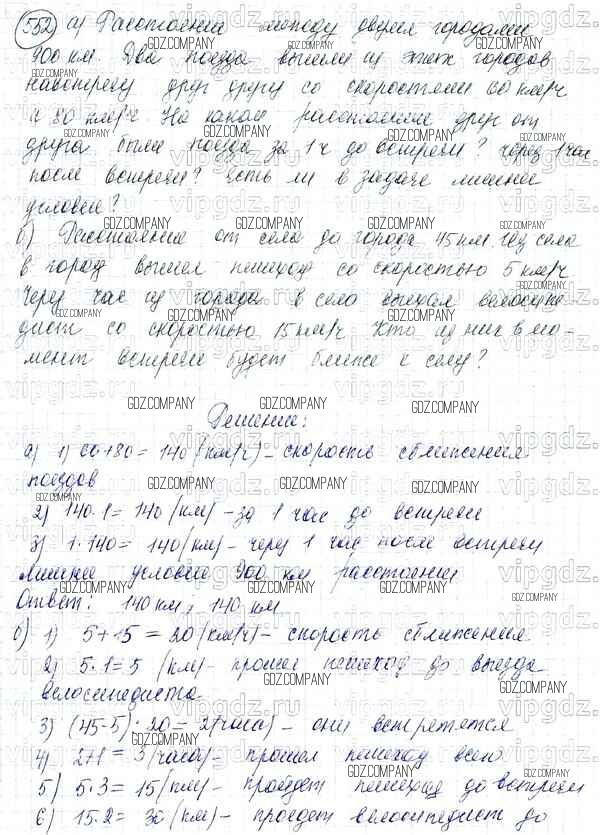 552 а) Расстояние между двумя городами
900 км. Два поезда вышли из этих городов
навстречу друг другу со скоростями 60 км/ч
и 80 км/ч. На каком расстоянии друг от
друга были поезда за 1 ч до встречи? через 1 час
после встречи? Есть ли в задаче лишнее
условие?
б) Расстояние от села до города 45 км. Из села
в город вышел пешеход со скоростью 5 км/ч
Через час из города в село выехал велосипе
дист со скоростью 15 км/ч Кто из них в мо-
мент встречи будет ближе к селу?
Решение:
а) 1) 60+80= 140 (км/ч) – скорость сближения
поездов
2) 140·1= 140 (км) – за 1 час до встречи
3) 1·140= 140 (км) – через 1 час после встречи
Лишнее условие 900 км расстояние
Ответ: 140 км; 140 км
б) 1) 5+15 = 20 (км/ч) – скорость сближения
2) 5·1=5 (км) – прошел пешеход до выезда
велосипедиста
3) (45-5):20= 2(часа) – они встретятся
4) 2+1= 3(часа) – прошел пешеход всего
5) 5·3= 15(км) – пройдет пешеход до встречи
6) 15·2= 30 (км) – проедет велосипедист до
GDZ.COMPANY
vipgdz.ru